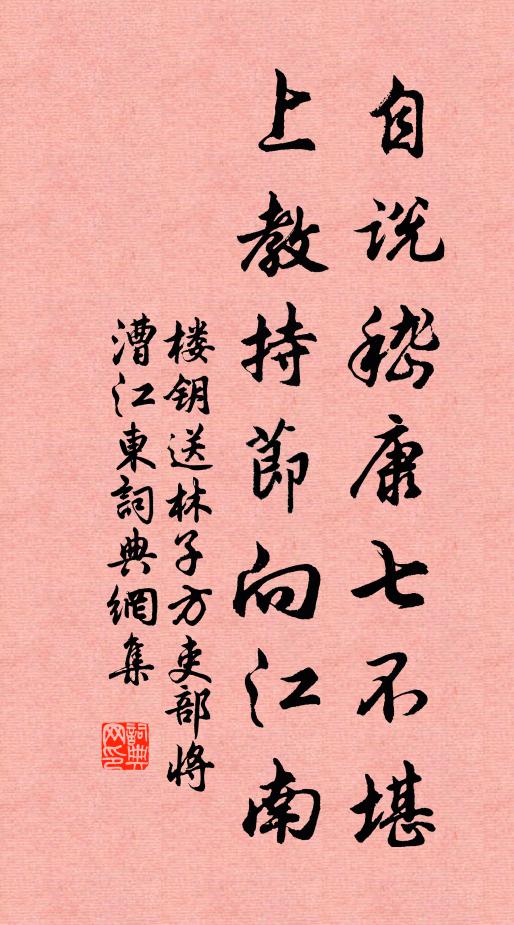 自说嵇康七不堪
上教持節向江南
楼钥送林子方吏部将
漕江東詞典網集
詞典
网印